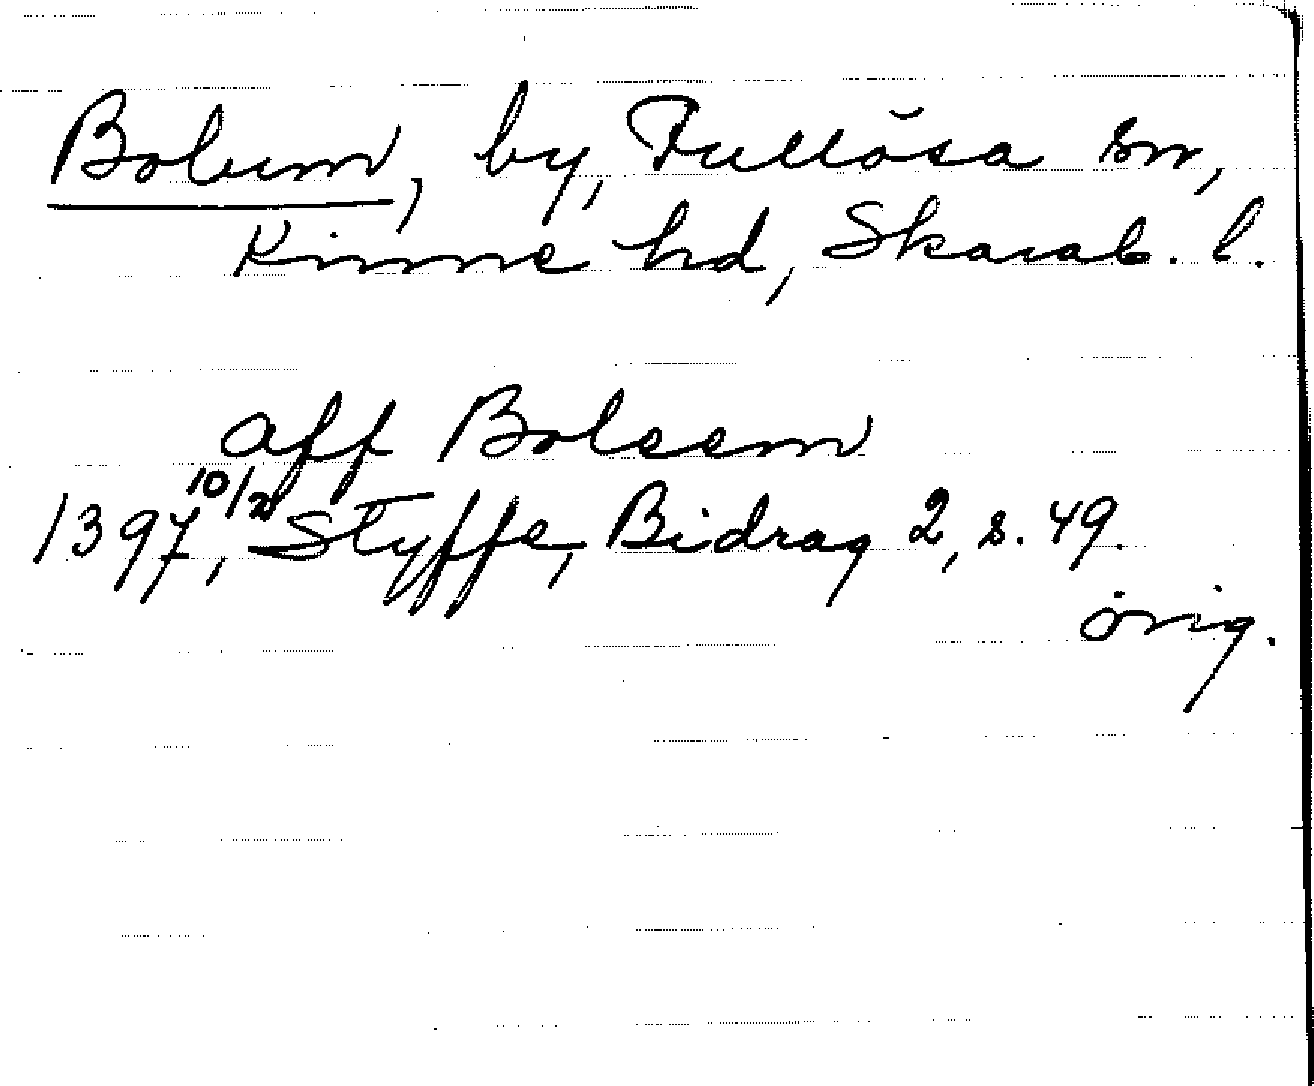 Bolum, by, Fullösa sn,
Kinne hd, Skarab. l.
aff Boleem
1397 10/2, Styffe, Bidrag 2, s. 49.
orig.